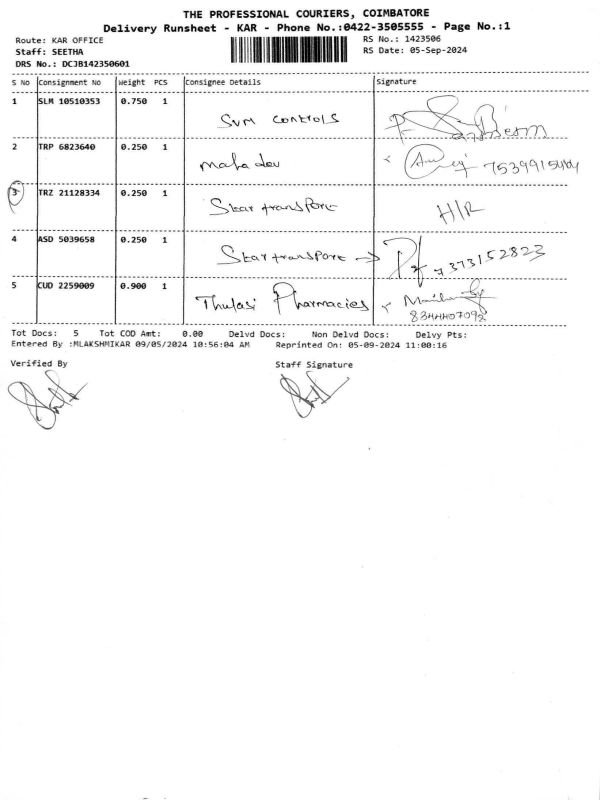 THE PROFESSIONAL COURIERS, COIMBATORE
Delivery Runsheet - KAR - Phone No.:0422-3505555 - Page No.:1
Route: KAR OFFICE RS No.: 1423506
Staff: SEETHA RS Date: 05-Sep-2024
DRS No.: DCJB142350601
S No Consignment No Weight PCS Consignee Details Signature
1 SLM 10510353 0.750 1 SVM Controls
2 TRP 6823640 0.250 1 Mahadev
3 TRZ 21128334 0.250 1 Star transport H/R
4 ASD 5039658 0.250 1 Star transport → 7373152823
5 CUD 2259009 0.900 1 Thulasi Pharmacies
Tot Docs: 5 Tot COD Amt: 0.00 Delvd Docs: Non Delvd Docs: Delvy Pts:
Entered By :MLAKSHMIKAR 09/05/2024 10:56:04 AM Reprinted On: 05-09-2024 11:00:16
Verified By Staff Signature